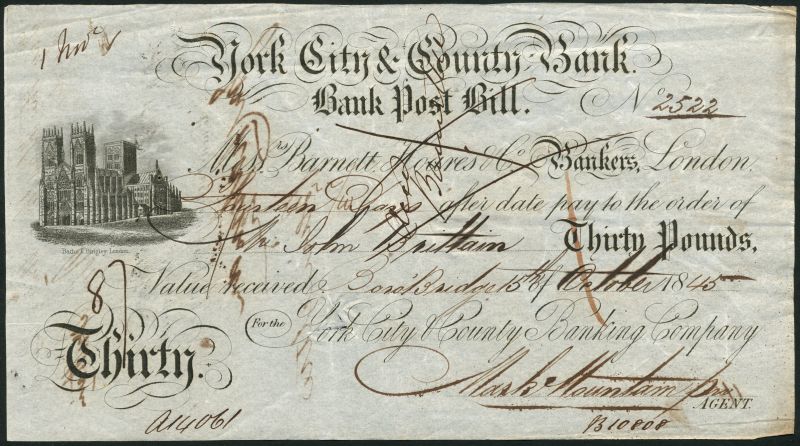 1 Nov
York City & County Bank.
Bank Post Bill.
No 2522
Messrs Barnett, Hoares & Co. Bankers, London.
Fourteen Days after date pay to the order of
Mr John Brittain Thirty Pounds,
Bacho & Brigley London.
Value received Boro'Bridge 15th of October 1845
For the York City & County Banking Company
Thirty.
87
Mark Mountain
AGENT.
A14061
B10808